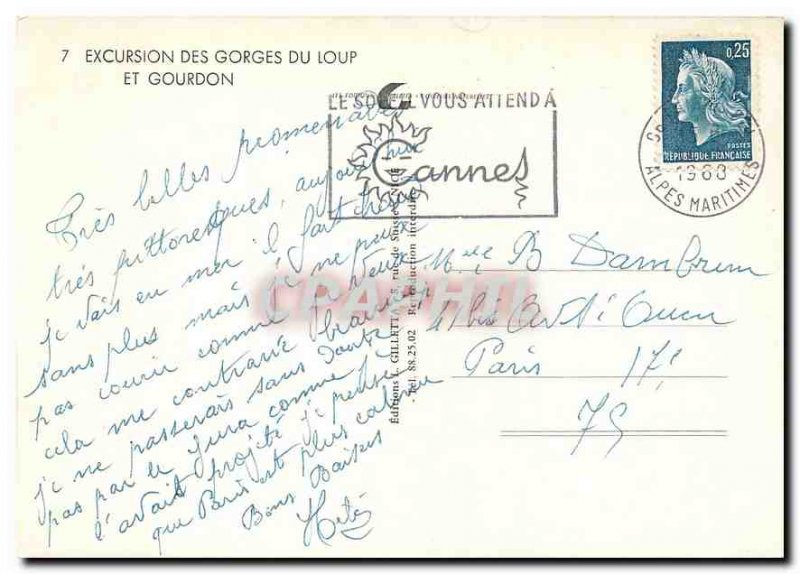 7 EXCURSION DES GORGES DU LOUP
ET GOURDON
LE SOLEIL VOUS ATTEND A
Cannes
0,25
POSTES
REPUBLIQUE FRANÇAISE
1968
ALPES MARITIMES
Très belles promenades
très pittoresques, aujourd'hui
je vais en mer il fait chaud
sans plus mais je ne peux
pas courir comme je veux
cela me contrarie
je ne passerais sans doute
pas par le Jura comme je
l'avais projeté je pense
que Paris est plus calme
Bons Baisers
Melle B Dambrun
Av St Ouen
Paris 17e
75
Éditions L. GILLETTA, 8, rue de Suisse, NICE
Tel. 88.25.02 Reproduction interdite
CPAPHIL